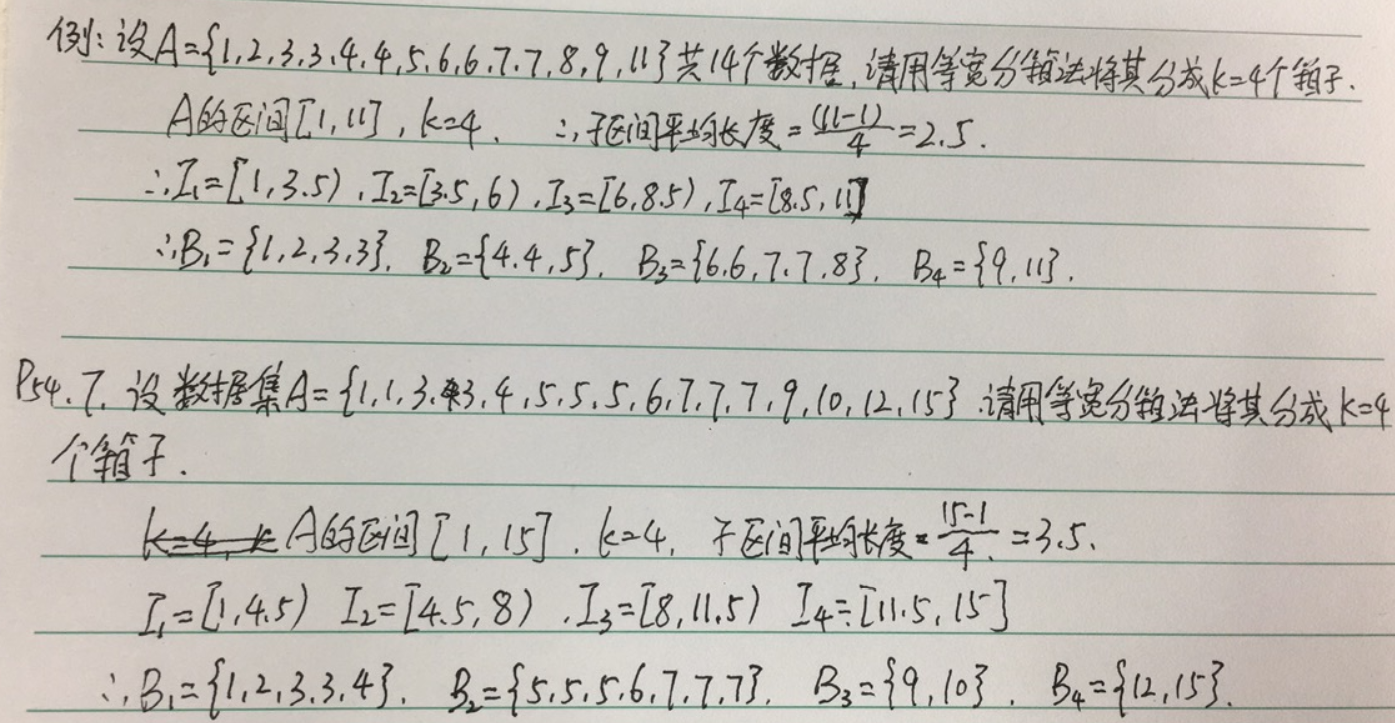 例:设A={1,2,3,3,4,4,5,6,6,7,7,8,9,11}共14个数据,请用等宽分箱法将其分成k=4个箱子.
A的区间[1,11],k=4. ∴子区间平均长度=(11-1)/4=2.5.
∴I₁=[1,3.5),I₂=[3.5,6),I₃=[6,8.5),I₄=[8.5,11]
∴B₁={1,2,3,3}. B₂={4,4,5}. B₃={6,6,7,7,8}. B₄={9,11}.
P54.7.设数据集A={1,1,3,3,4,5,5,5,6,7,7,7,9,10,12,15}.请用等宽分箱法将其分成k=4
个箱子.
A的区间[1,15].k=4. 子区间平均长度=(15-1)/4=3.5.
I₁=[1,4.5) I₂=[4.5,8).I₃=[8,11.5) I₄=[11.5,15]
∴B₁={1,2,3,3,4}. B₂={5,5,5,6,7,7,7}. B₃={9,10}. B₄={12,15}.